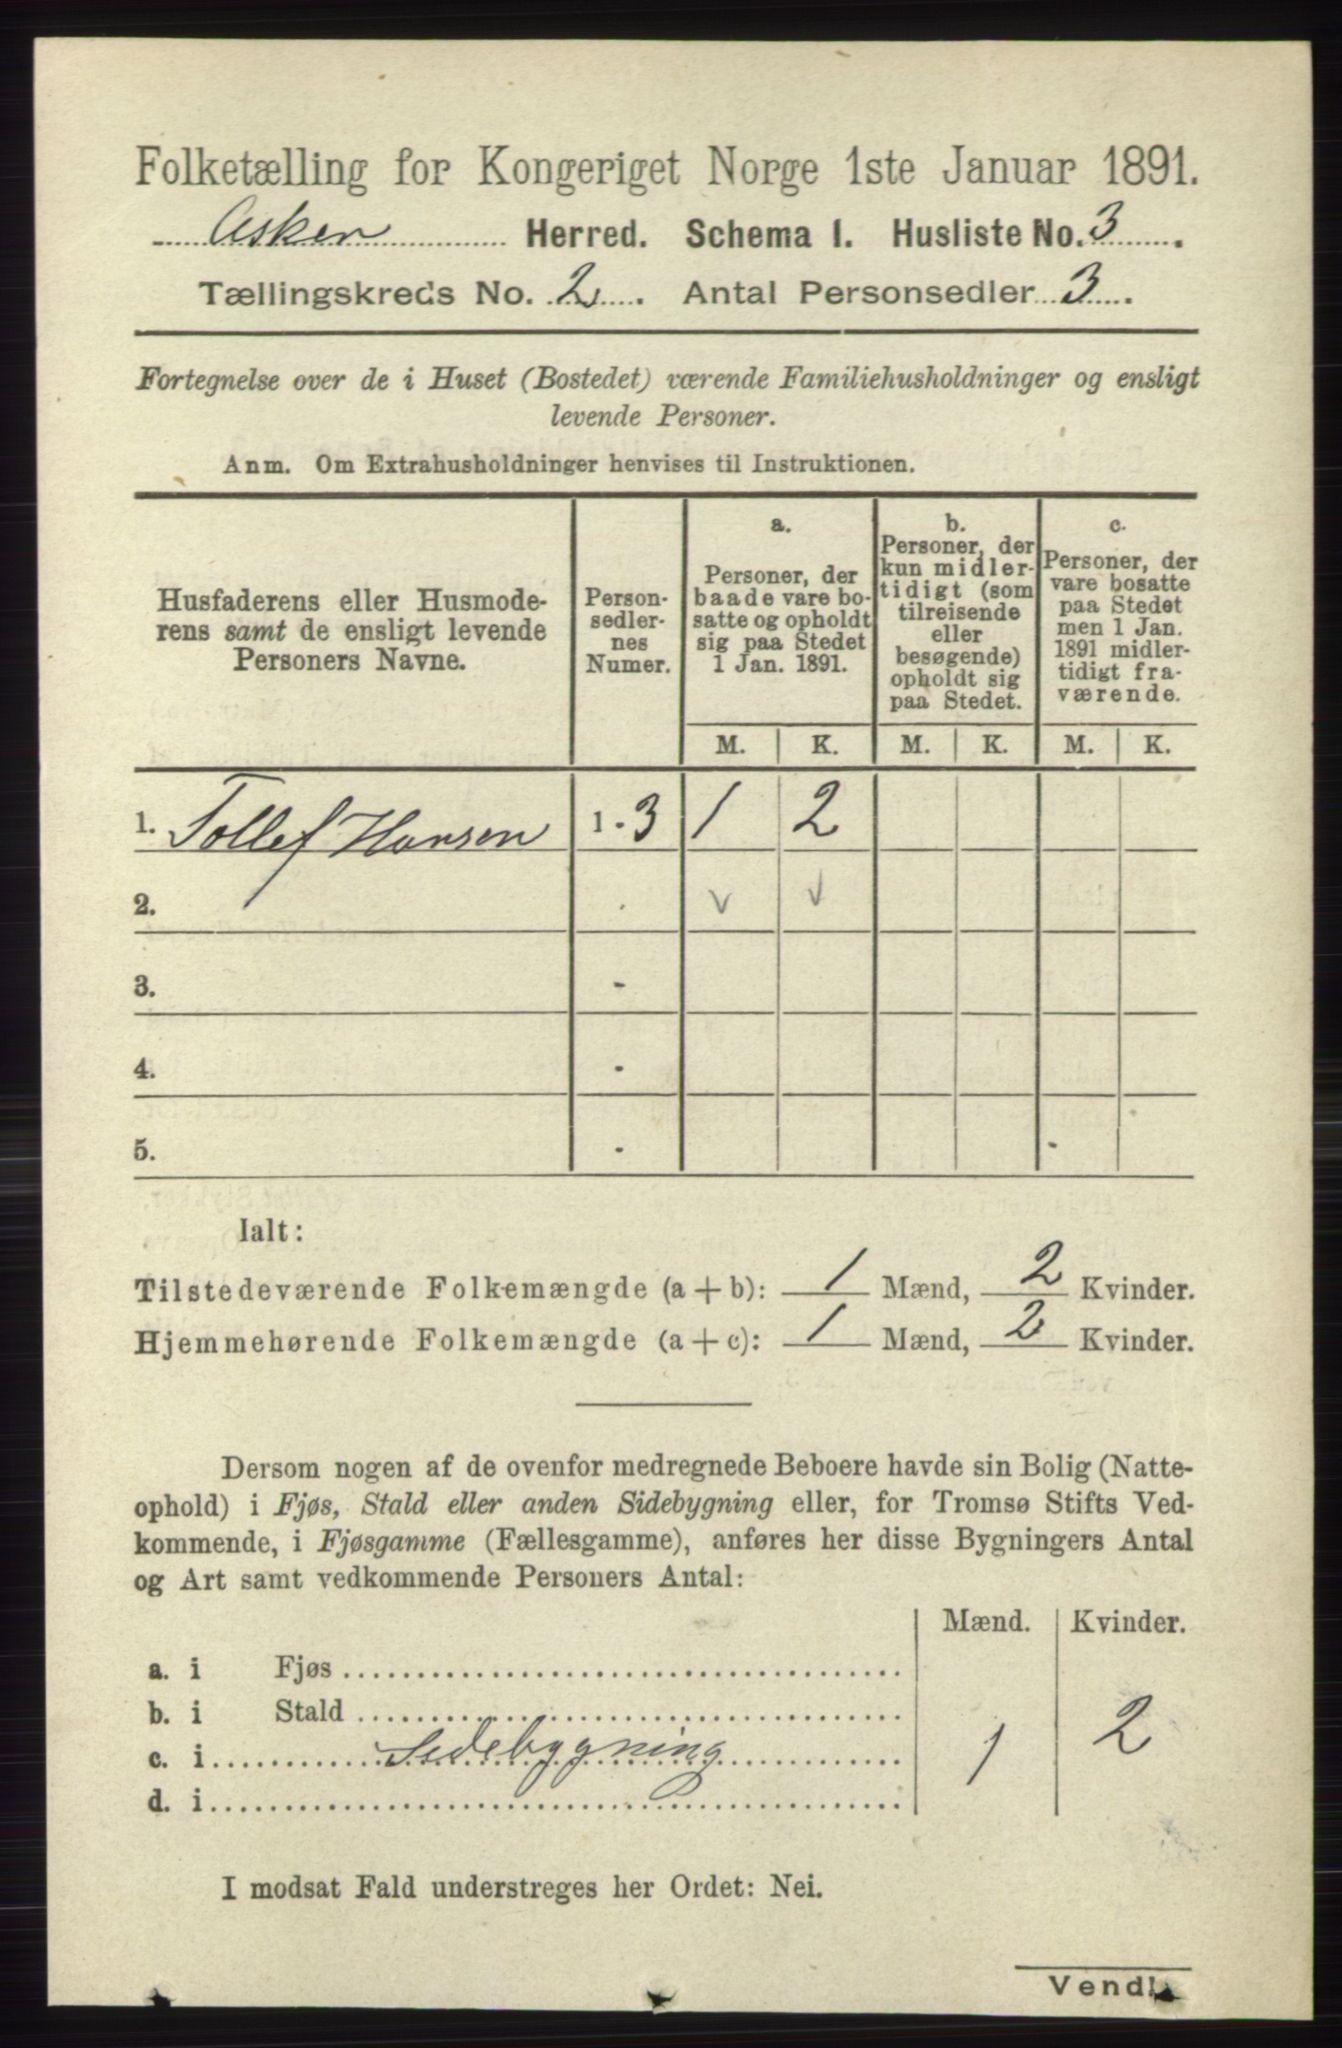 Folketælling for Kongeriget Norge 1ste Januar 1891.
Asker Herred. Schema 1. Husliste No. 3.
Tællingskreds No. 2. Antal Personsedler 3.
Fortegnelse over de i Huset (Bostedet) værende Familiehusholdninger og ensligt
levende Personer.
Anm. Om Extrahusholdninger henvises til Instruktionen.
Husfaderens eller Husmode-
rens samt de ensligt levende
Personers Navne.
Person-
sedler-
nes
Numer.
a.
Personer, der
baade vare bo-
satte og opholdt
sig paa Stedet
1 Jan. 1891.
b.
Personer, der
kun midler-
tidigt (som
tilreisende
eller
besøgende)
opholdt sig
paa Stedet.
c.
Personer, der
vare bosatte
paa Stedet
men 1 Jan.
1891 midler-
tidigt fra-
værende.
M. K. M. K. M. K.
1. Tollef Hansen 1-3 1 2
2.
3. -
4. -
5. -
Ialt:
Tilstedeværende Folkemængde (a+b): 1 Mænd, 2 Kvinder.
Hjemmehørende Folkemængde (a+c): 1 Mænd, 2 Kvinder.
Dersom nogen af de ovenfor medregnede Beboere havde sin Bolig (Natte-
ophold) i Fjøs, Stald eller anden Sidebygning eller, for Tromsø Stifts Ved-
kommende, i Fjøsgamme (Fællesgamme), anføres her disse Bygningers Antal
og Art samt vedkommende Personers Antal:
Mænd. Kvinder.
a. i Fjøs
b. i Stald
c. i Sidebygning 1 2
d. i
I modsat Fald understreges her Ordet: Nei.
Vend!